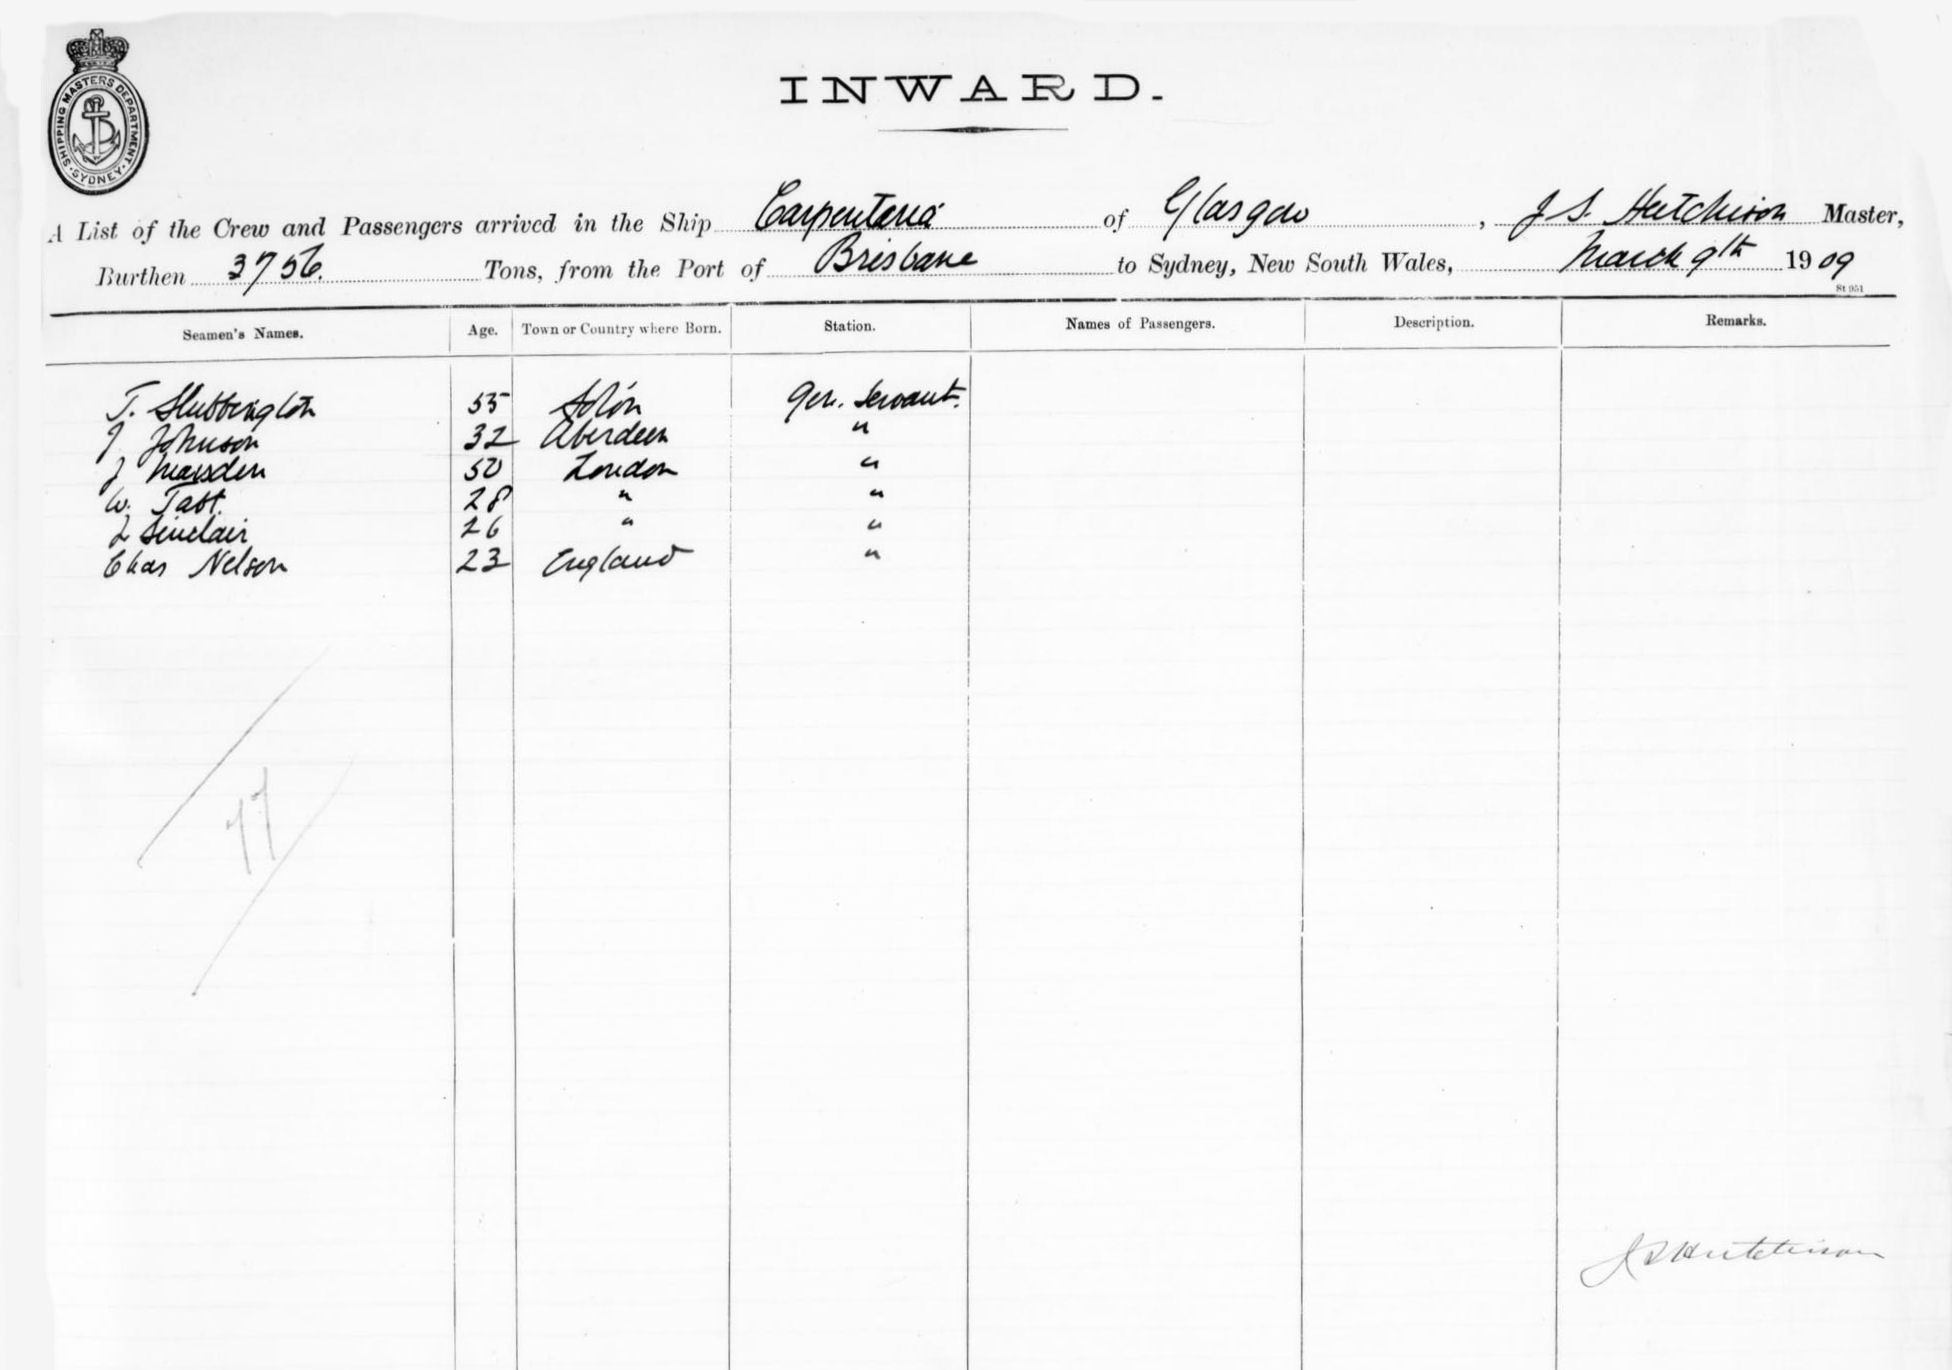 SHIPPING MASTERS DEPARTMENT. SYDNEY.
INWARD.
A List of the Crew and Passengers arrived in the Ship Carpentaria of Glasgow, J. S. Hutchison Master,
Burthen 3756. Tons, from the Port of Brisbane to Sydney, New South Wales, March 9th 1909
St 951
Seamen's Names. Age. Town or Country where Born. Station. Names of Passengers. Description. Remarks.
T. Slubbington 55 Gen. Servant.
J. Johnson 32 Aberdeen "
J Marsden 50 London "
W. Tabt. 28 " "
L Sinclair 26 " "
Chas Nelson 23 England "
77
J S Hutchison